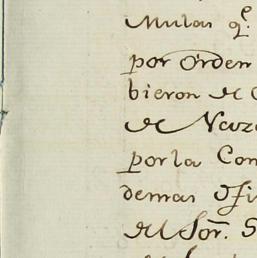 Mulas q.e
por Orden
bieron de
de Naza
por la Con
demas Ofi
del Sor. S